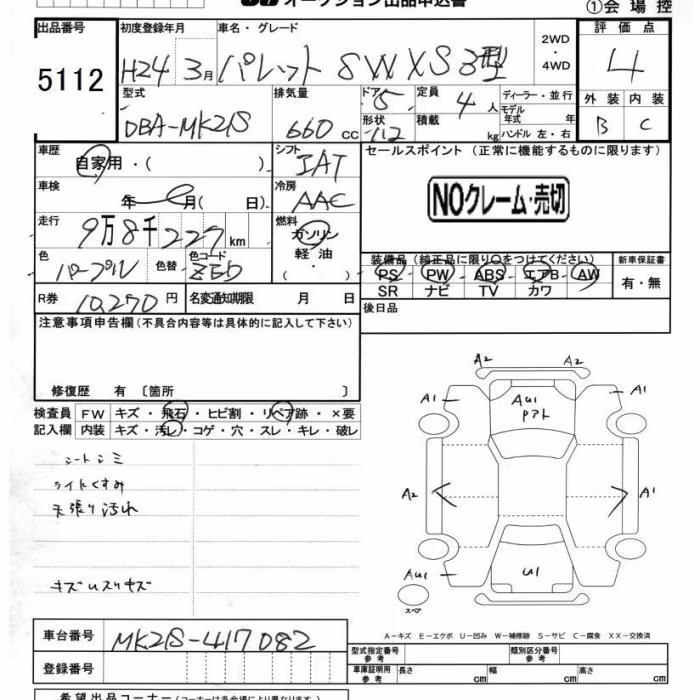 オークション出品申込書
①会場控
出品番号
5112
初度登録年月 車名・グレード
H24 3月 パレット SW XS 3型
2WD
・
4WD
評価点
4
型式 排気量 ドア 定員 ディーラー・並行
DBA-MK21S 660cc 5 4人
モデル年式 年
形状 積載 kg ハンドル 左・右
外装 内装
B C
車歴 自家用・( )
シフト IAT
車検 年 月( 日)
冷房 AAC
走行 9万8千227km
燃料 ガソリン
軽油
・( )
色 パープル 色替 色コード ZED
R券 10,270円 名変通知期限 月 日
セールスポイント(正常に機能するものに限ります)
NOクレーム・売切
装備品(純正品に限り○をつけてください) 新車保証書
PS PW ABS エアB AW 有・無
SR ナビ TV カワ
後日品
注意事項申告欄(不具合内容等は具体的に記入して下さい)
修復歴 有〔箇所 〕
検査員 FW キズ・飛石・ヒビ割・リペア跡・×要
記入欄 内装 キズ・汚レ・コゲ・穴・スレ・キレ・破レ
シートシミ
ライトくすみ
天張り汚れ
キズUスリキズ
A2 A2
A1 AU1 A1
Pアト
A2 A1
AU1 U1
スペア
A-キズ E-エクボ U-凹み W-補修跡 S-サビ C-腐食 XX-交換済
車台番号 MK21S-417082
型式指定番号 参考 類別区分番号 参考
登録番号
車庫証明用 参考 長さ cm 幅 cm 高さ cm
希望出品コーナー(コーナーは各会場により異なります)